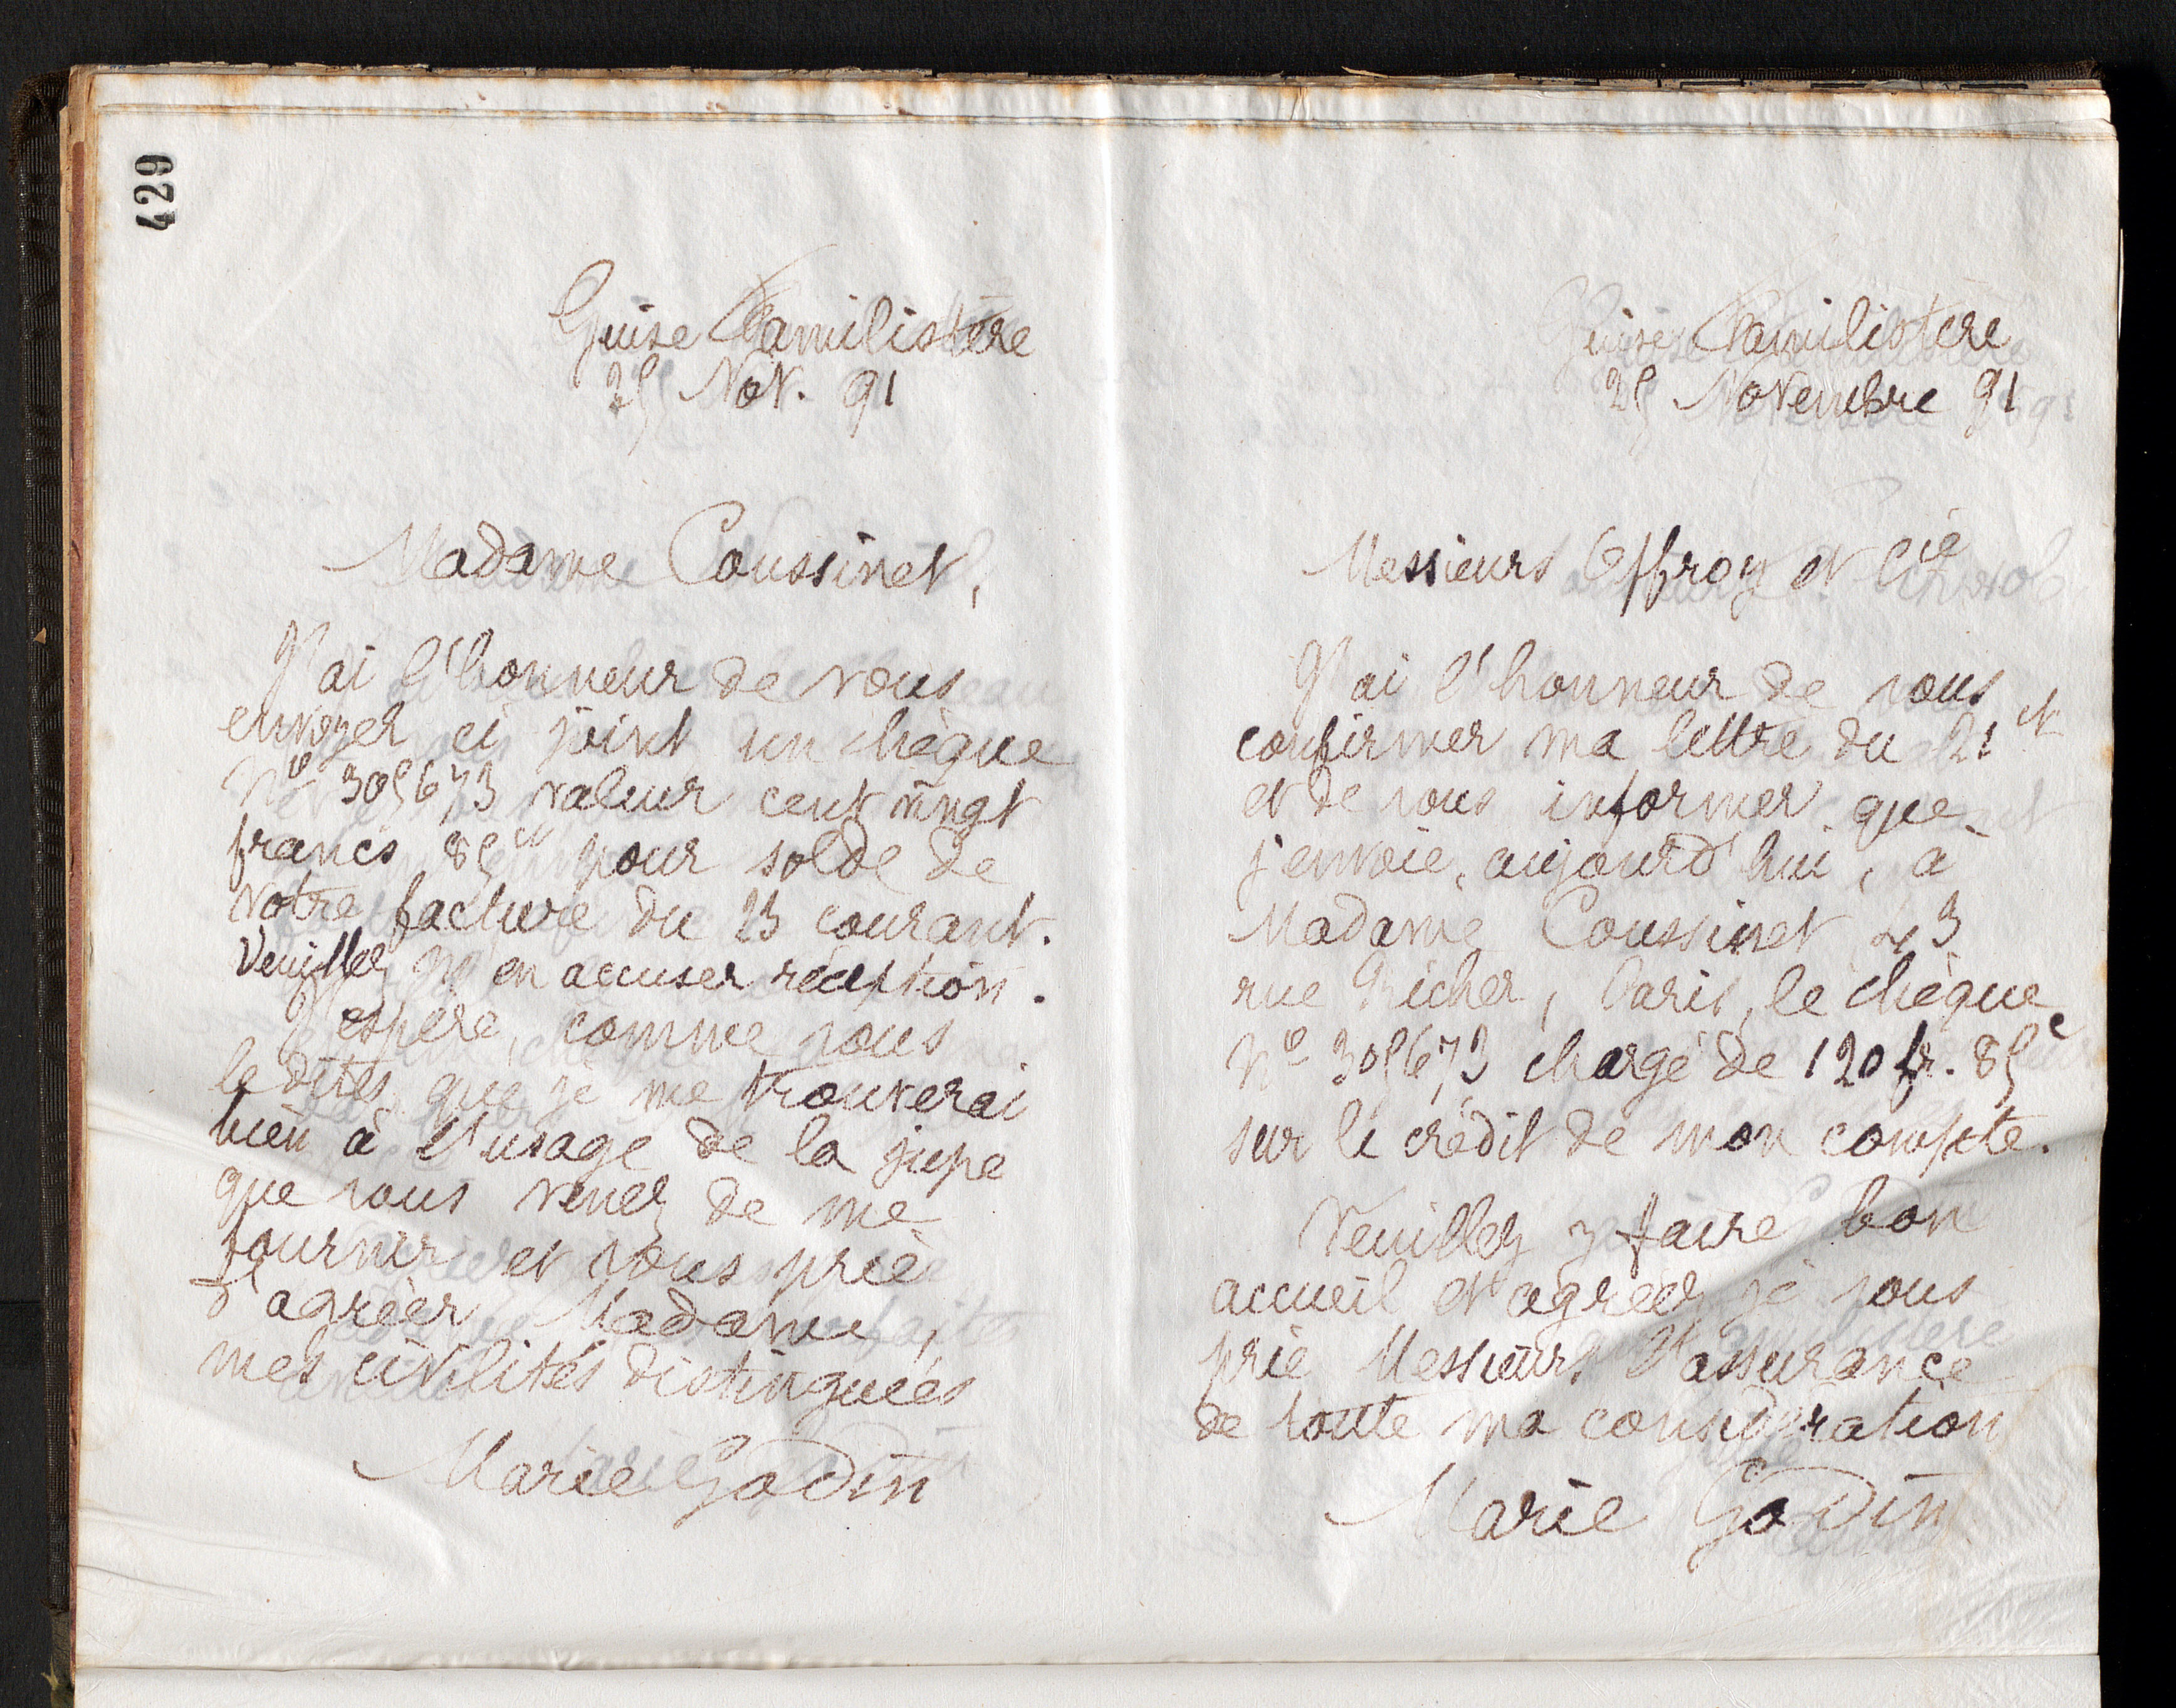 429
Guise Familistère
25 Nov. 91
Madame Coussinet,
J'ai l'honneur de vous
envoyer ci joint un chèque
No 305673 valeur cent vingt
francs 85ct pour solde de
votre facture du 23 courant.
Veuillez m'en accuser réception.
J'espère, comme vous
le dites, que je me trouverai
bien à l'usage de la jupe
que vous venez de me
fournir et vous prie
d'agréer, Madame,
mes civilités distinguées
Marie Godin
Guise Familistère
25 Novembre 91
Messieurs Effroy et Cie
J'ai l'honneur de vous
confirmer ma lettre du 21 ct
et de vous informer que
j'envoie, aujourd'hui, à
Madame Coussinet 43
rue Richer, Paris, le chèque
No 305673 chargé de 120 fr. 85c
sur le crédit de mon compte.
Veuillez y faire bon
accueil et agréer, je vous
prie Messieurs l'assurance
de toute ma considération
Marie Godin